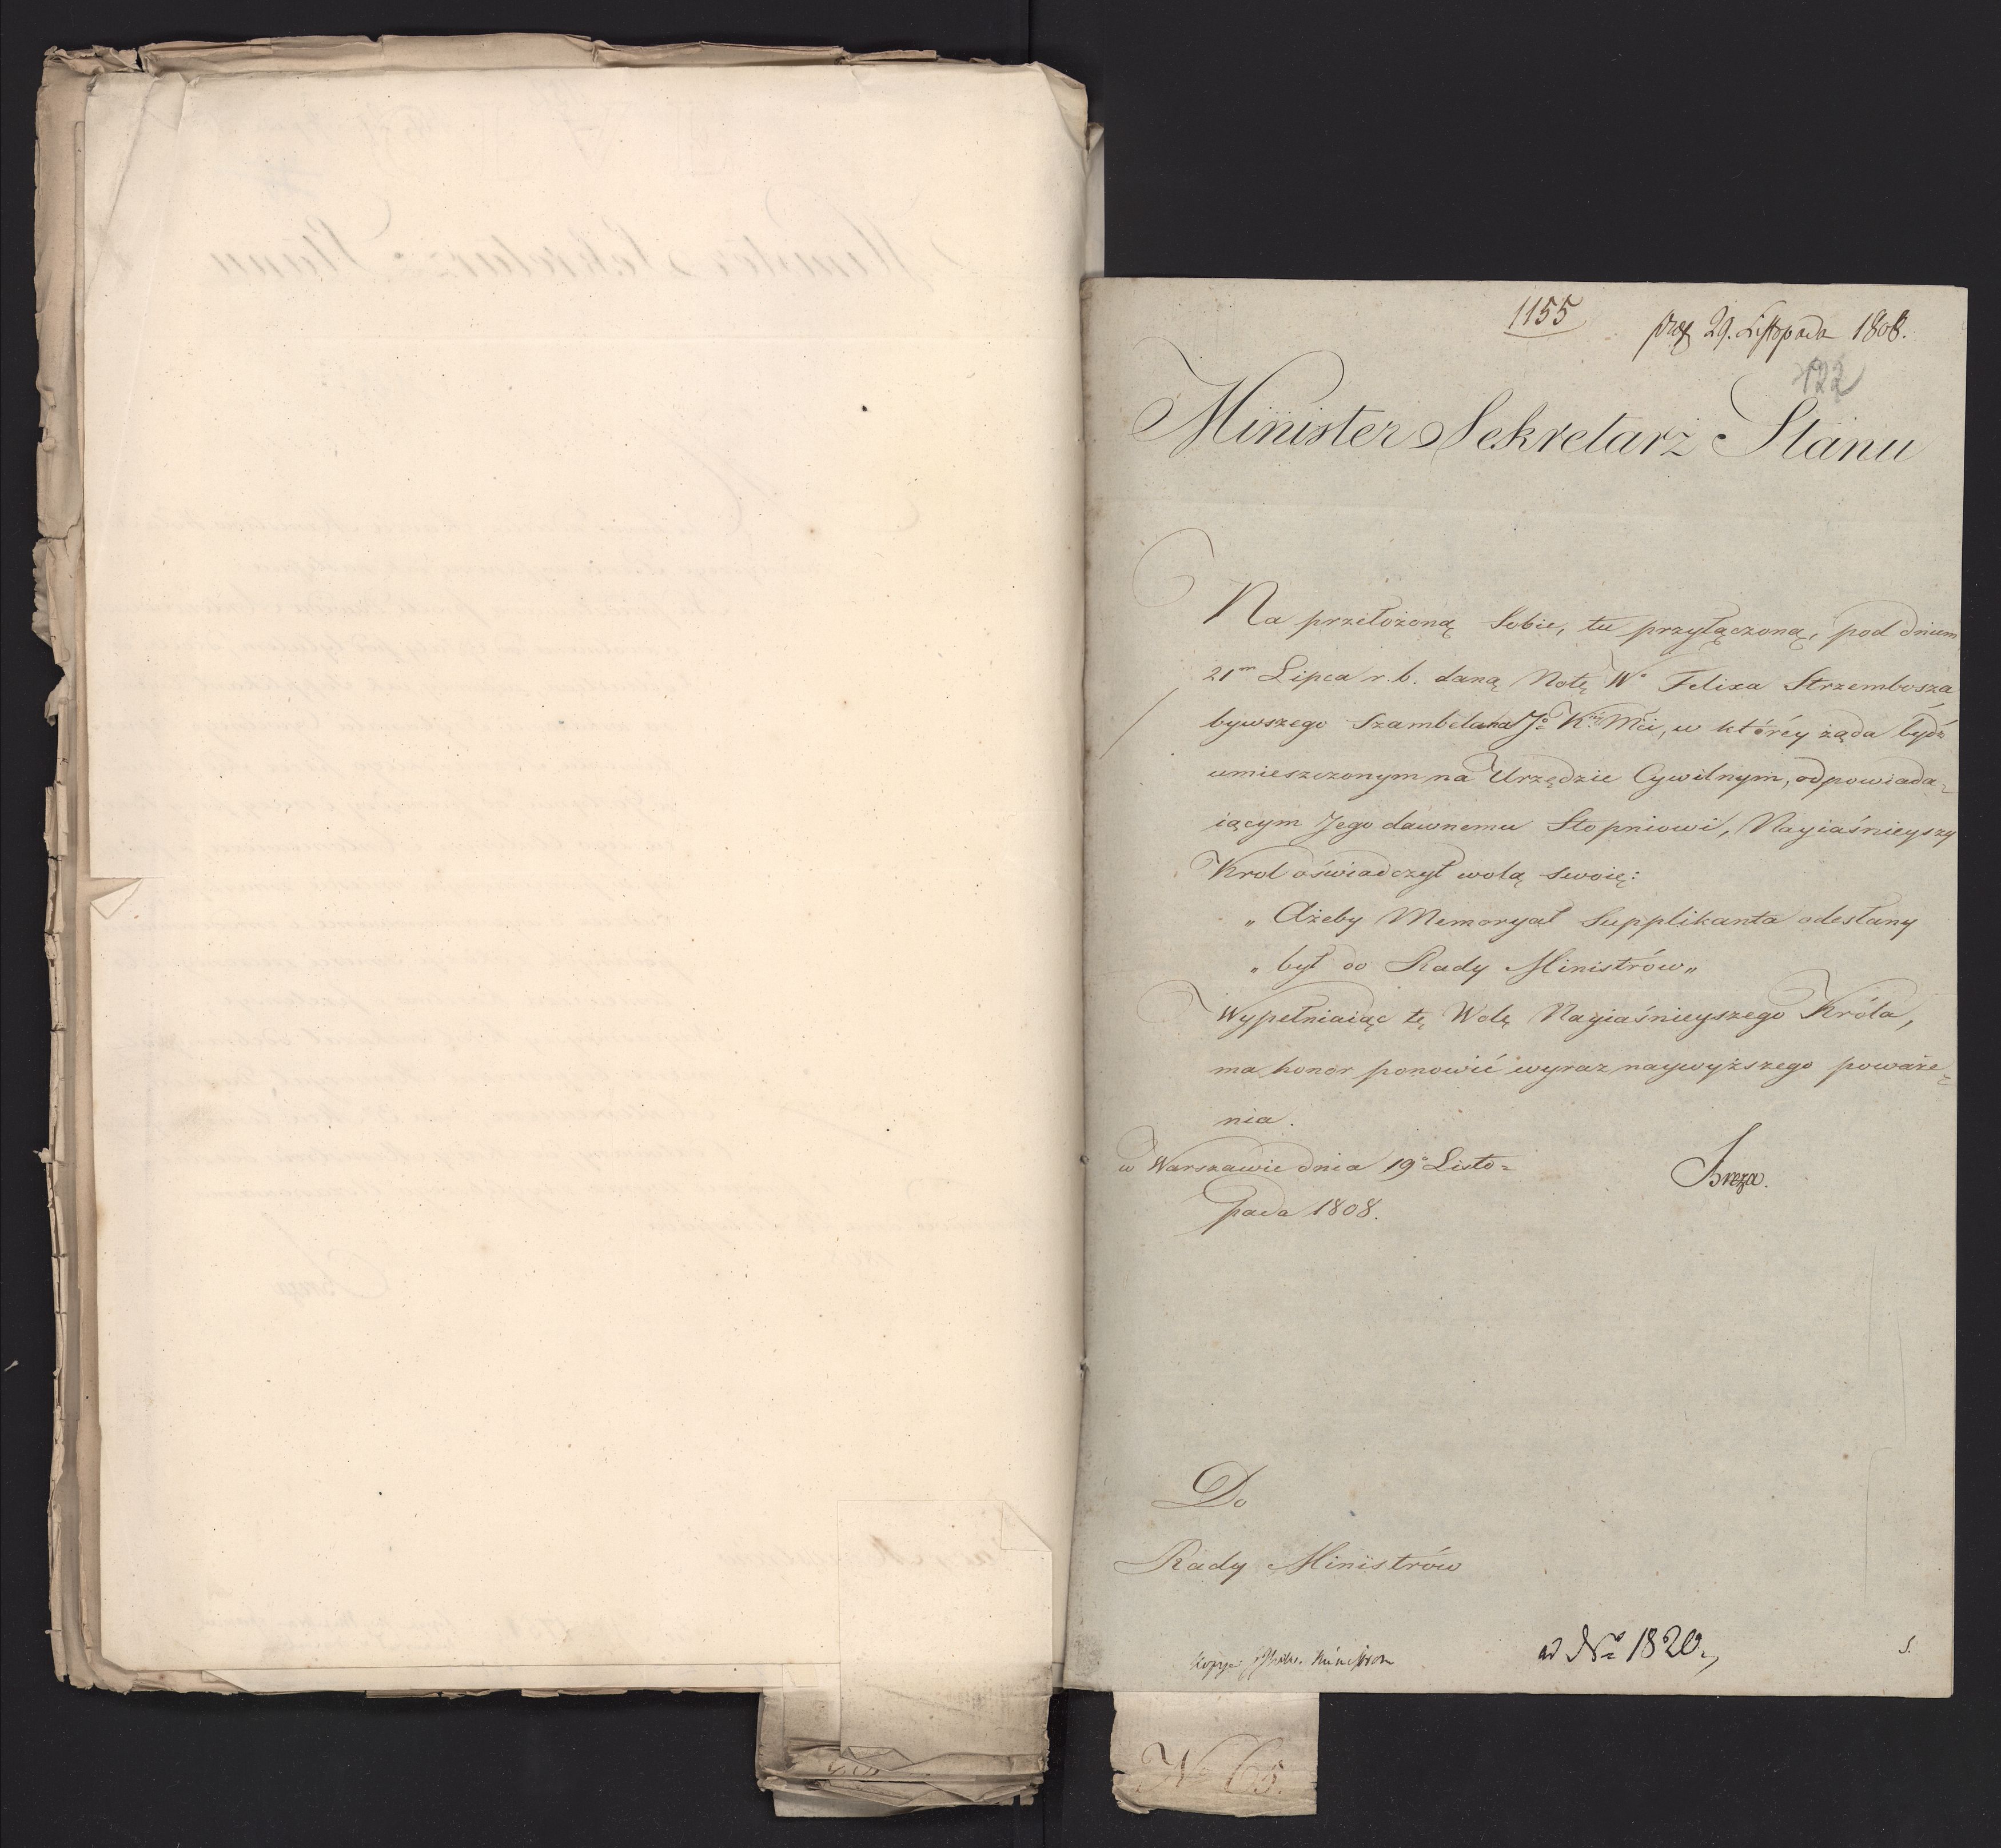 1155
29. Listopada 1808.
122
Minister Sekretarz Stanu
Na przełożoną Sobie, tu przyłączoną, pod dniem
21m Lipca r. b. daną Notę Wo Felixa Strzembosza
bywszego Szambelana Jo Kr Mci, w którey żąda bydź
umieszczonym na Urzędzie Cywilnym, odpowiada-
iącym Jego dawnemu Stopniowi, Nayiaśnieyszy
Krol oświadczył wolą swoię:
„ Ażeby Memoryał Supplikanta odesłany
„ był do Rady Ministrów „
Wypełniaiąc tę Wolę Nayiaśnieyszego Króla,
ma honor ponowić wyraz naywyższego poważe-
nia.
w Warszawie dnia 19o Listo=
pada 1808.
Breza.
Do
Rady Ministrów
ad No 1820.
No 65.